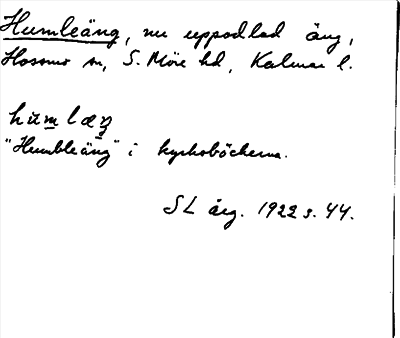 Humleäng, nu uppodlad äng,
Hossmo sn, S. Möre hd, Kalmar l.
hu̇mlæŋ
"Humbleäng" i kyrkoböckerna.
SL årg. 1922 s. 44.